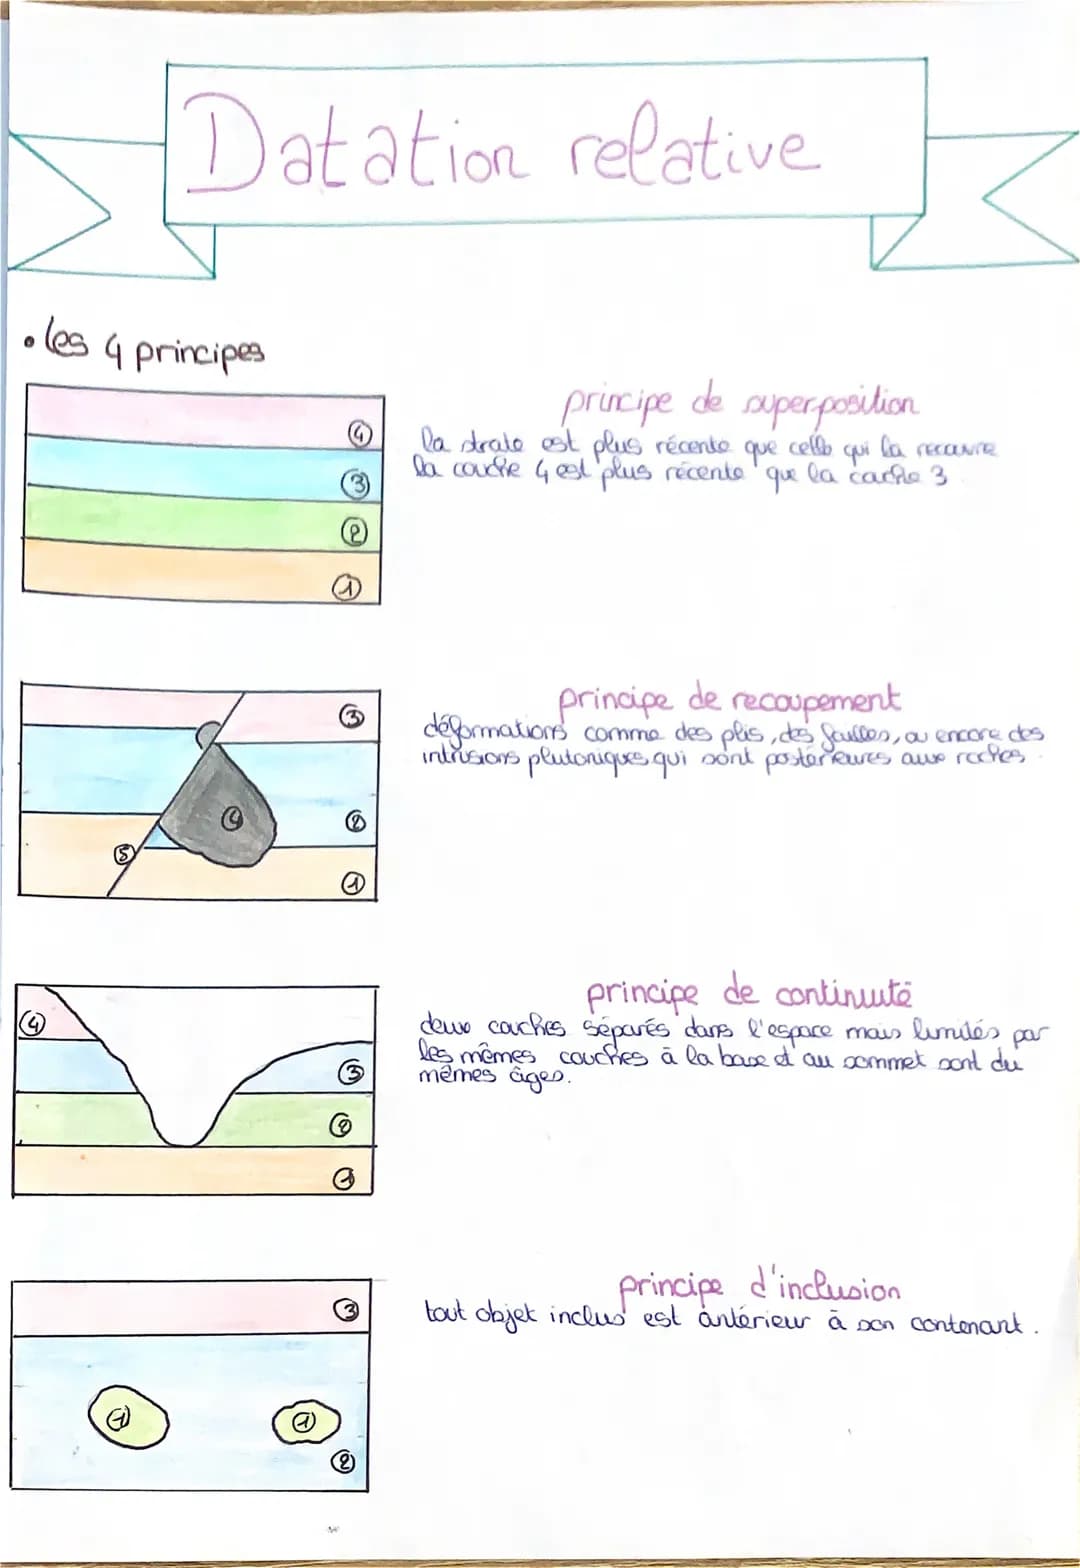 Datation relative
• les 4 principes
④
③
②
①
principe de superposition
la strate est plus récente que celle qui la recouvre
la couche 4 est plus récente que la couche 3
③
④
②
⑤
①
principe de recoupement
déformations comme des plis, des failles, ou encore des
intrusions plutoniques qui sont postérieures aux roches.
④
③
②
①
principe de continuité
deux couches séparés dans l'espace mais limités par
les mêmes couches à la base et au sommet sont du
mêmes âges.
③
①
①
②
principe d'inclusion
tout objet inclus est antérieur à son contenant.